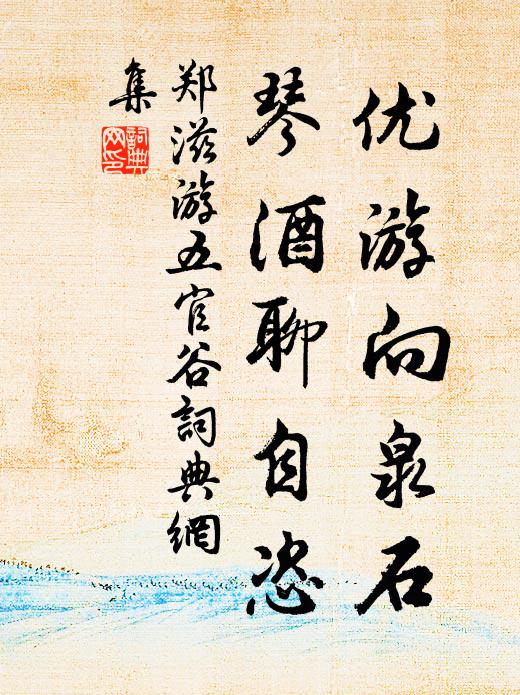 优游向泉石
琴酒聊自恣
郑滋游五官谷詞典網
集
詞典網印